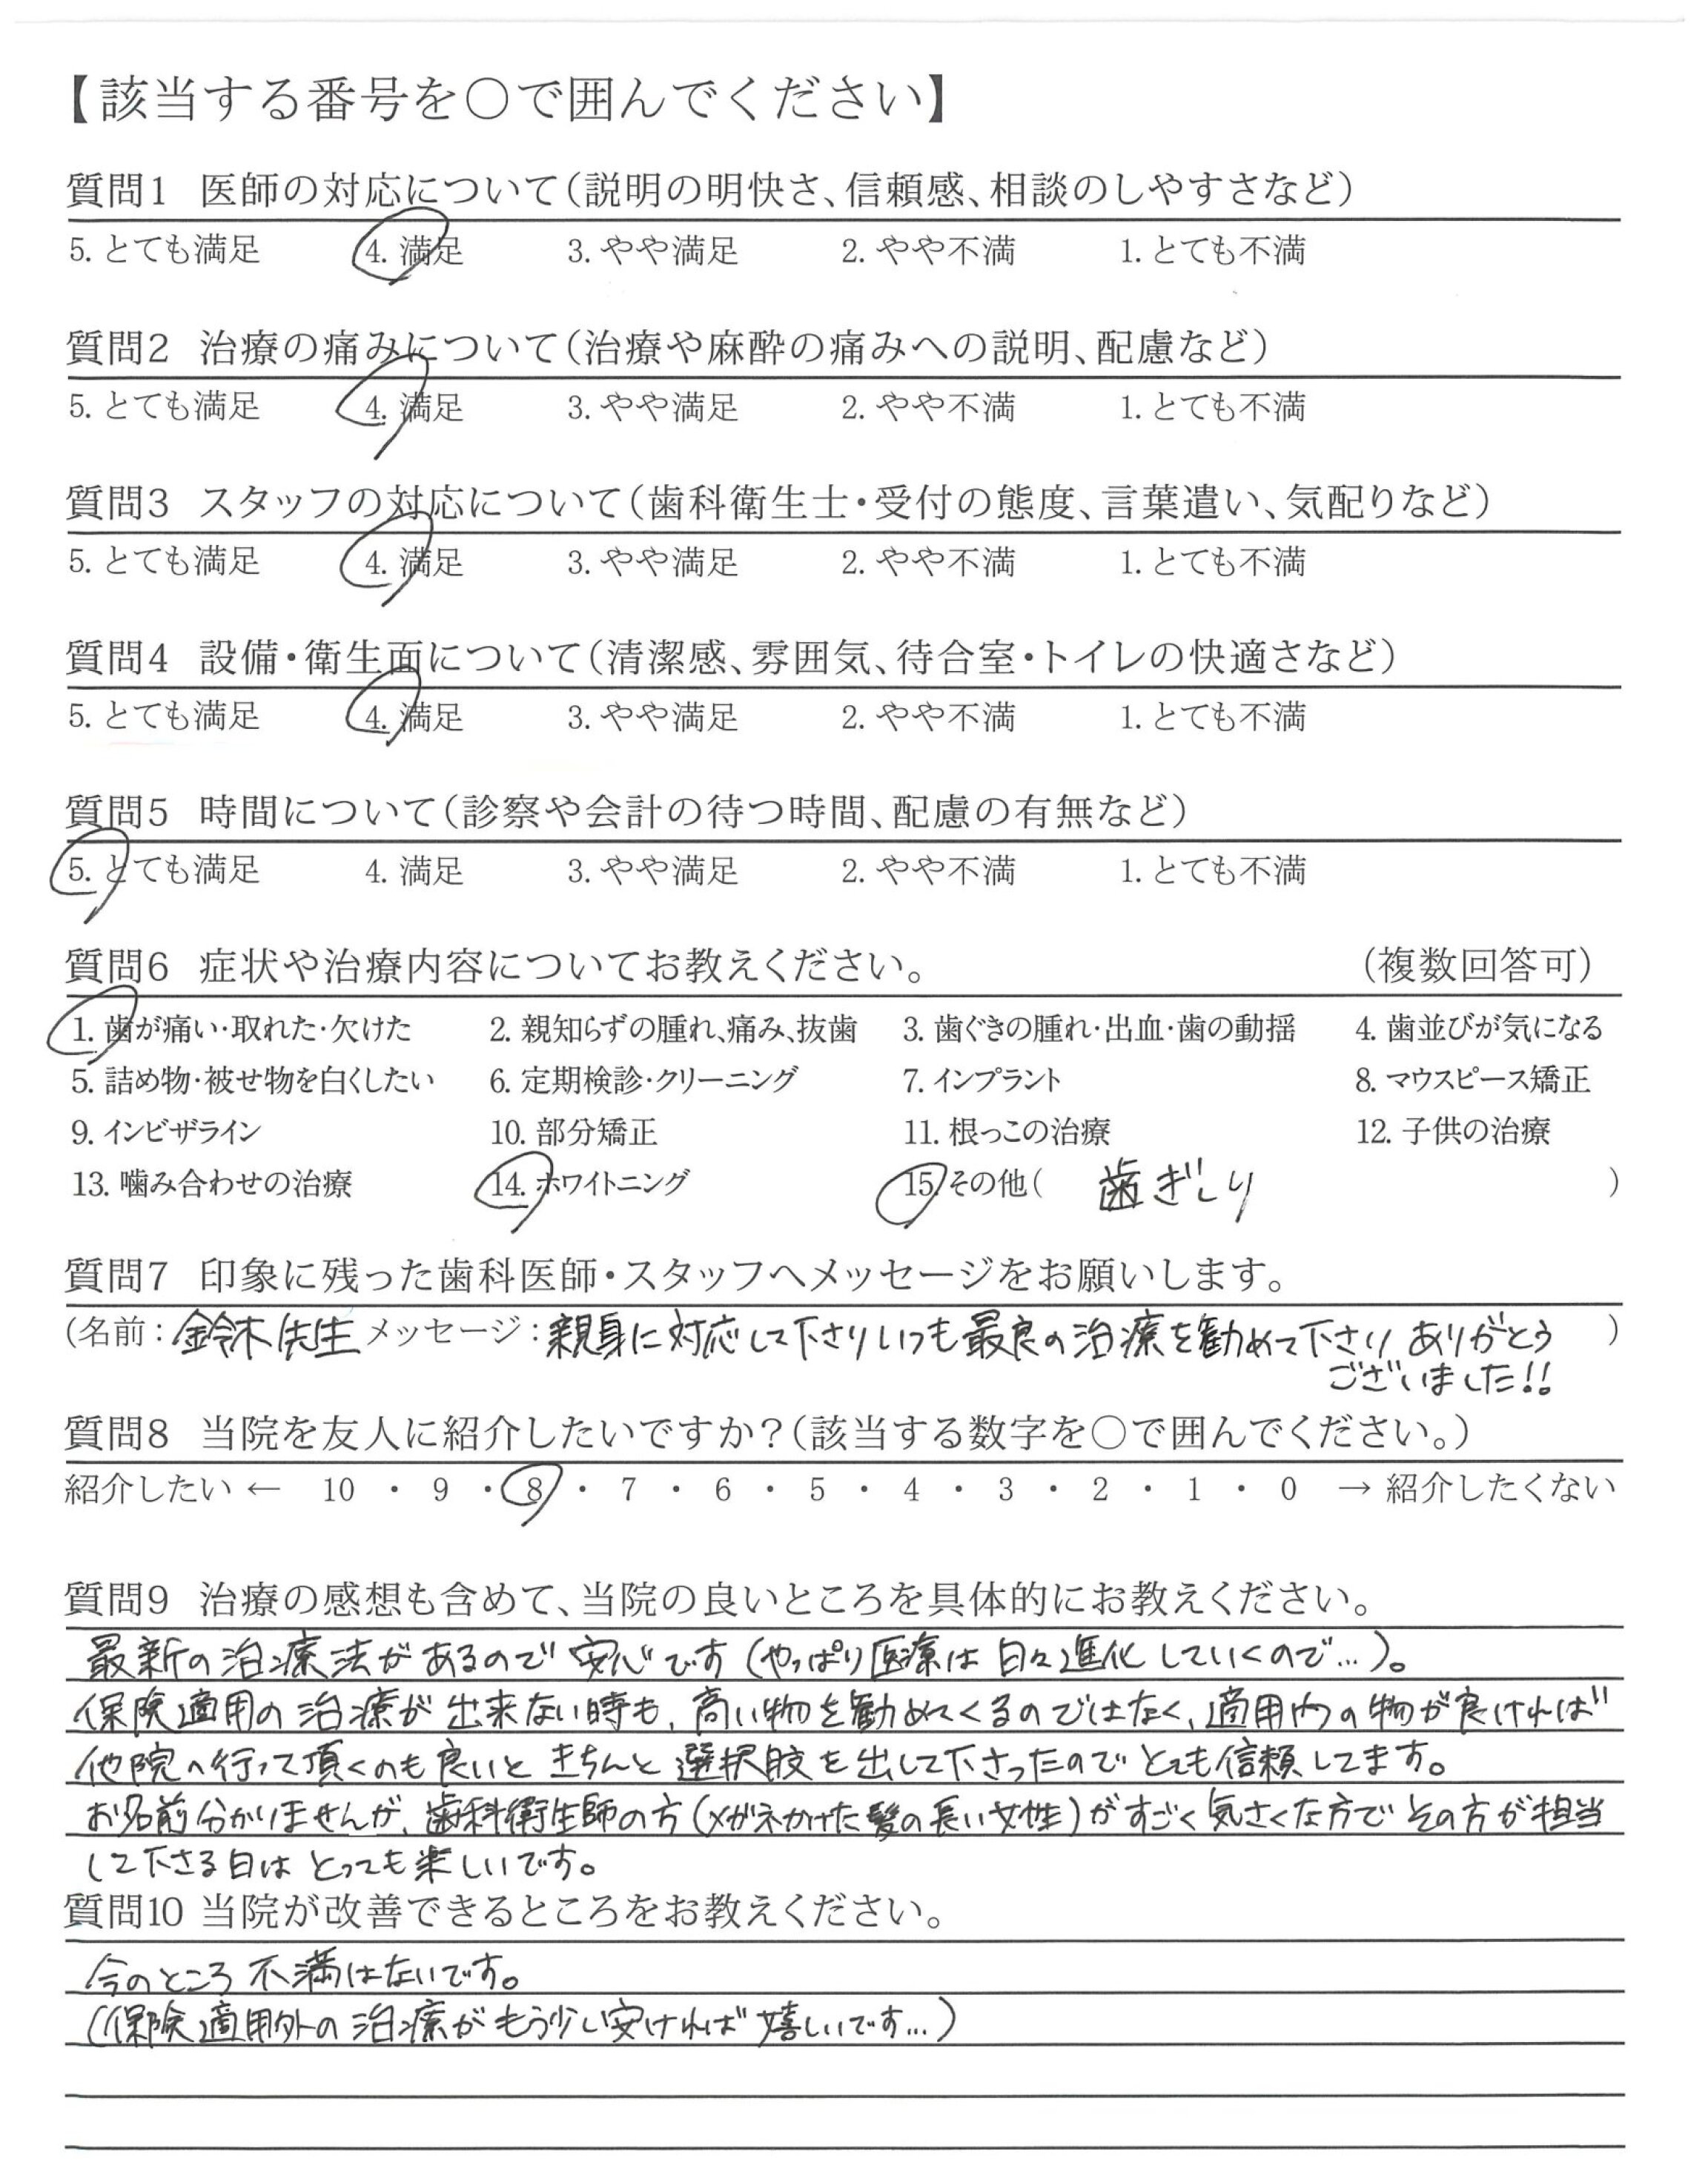 【該当する番号を○で囲んでください】
質問1 医師の対応について(説明の明快さ、信頼感、相談のしやすさなど)
5. とても満足 4. 満足 3. やや満足 2. やや不満 1. とても不満
質問2 治療の痛みについて(治療や麻酔の痛みへの説明、配慮など)
5. とても満足 4. 満足 3. やや満足 2. やや不満 1. とても不満
質問3 スタッフの対応について(歯科衛生士・受付の態度、言葉遣い、気配りなど)
5. とても満足 4. 満足 3. やや満足 2. やや不満 1. とても不満
質問4 設備・衛生面について(清潔感、雰囲気、待合室・トイレの快適さなど)
5. とても満足 4. 満足 3. やや満足 2. やや不満 1. とても不満
質問5 時間について(診察や会計の待つ時間、配慮の有無など)
5. とても満足 4. 満足 3. やや満足 2. やや不満 1. とても不満
質問6 症状や治療内容についてお教えください。 (複数回答可)
1. 歯が痛い・取れた・欠けた 2. 親知らずの腫れ、痛み、抜歯 3. 歯ぐきの腫れ・出血・歯の動揺 4. 歯並びが気になる
5. 詰め物・被せ物を白くしたい 6. 定期検診・クリーニング 7. インプラント 8. マウスピース矯正
9. インビザライン 10. 部分矯正 11. 根っこの治療 12. 子供の治療
13. 噛み合わせの治療 14. ホワイトニング 15. その他( 歯ぎしり )
質問7 印象に残った歯科医師・スタッフへメッセージをお願いします。
(名前：鈴木先生 メッセージ：親身に対応して下さりいつも最良の治療を勧めて下さり ありがとう )
ございました!!
質問8 当院を友人に紹介したいですか？(該当する数字を○で囲んでください。)
紹介したい ← 10 ・ 9 ・ 8 ・ 7 ・ 6 ・ 5 ・ 4 ・ 3 ・ 2 ・ 1 ・ 0 → 紹介したくない
質問9 治療の感想も含めて、当院の良いところを具体的にお教えください。
最新の治療法があるので安心です(やっぱり医療は日々進化していくので…)。
保険適用の治療が出来ない時も、高い物を勧めてくるのではなく、適用内の物が良ければ
他院へ行って頂くのも良いと きちんと選択肢を出して下さったので とても信頼してます。
お名前分かりませんが、歯科衛生師の方(メガネかけた髪の長い女性)がすごく気さくな方で その方が担当
して下さる日は とっても楽しいです。
質問10 当院が改善できるところをお教えください。
今のところ不満はないです。
(保険適用外の治療がもう少し安ければ嬉しいです…)